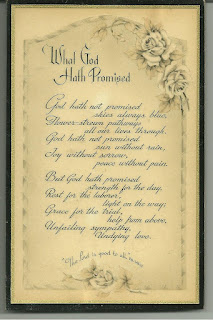 What God
Hath Promised
God hath not promised
skies always blue,
Flower-strewn pathways
all our lives through.
God hath not promised
sun without rain,
Joy without sorrow,
peace without pain.
But God hath promised
strength for the day,
Rest for the laborer,
light on the way;
Grace for the trial,
help from above,
Unfailing sympathy,
Undying love.
"The Lord is good to all."